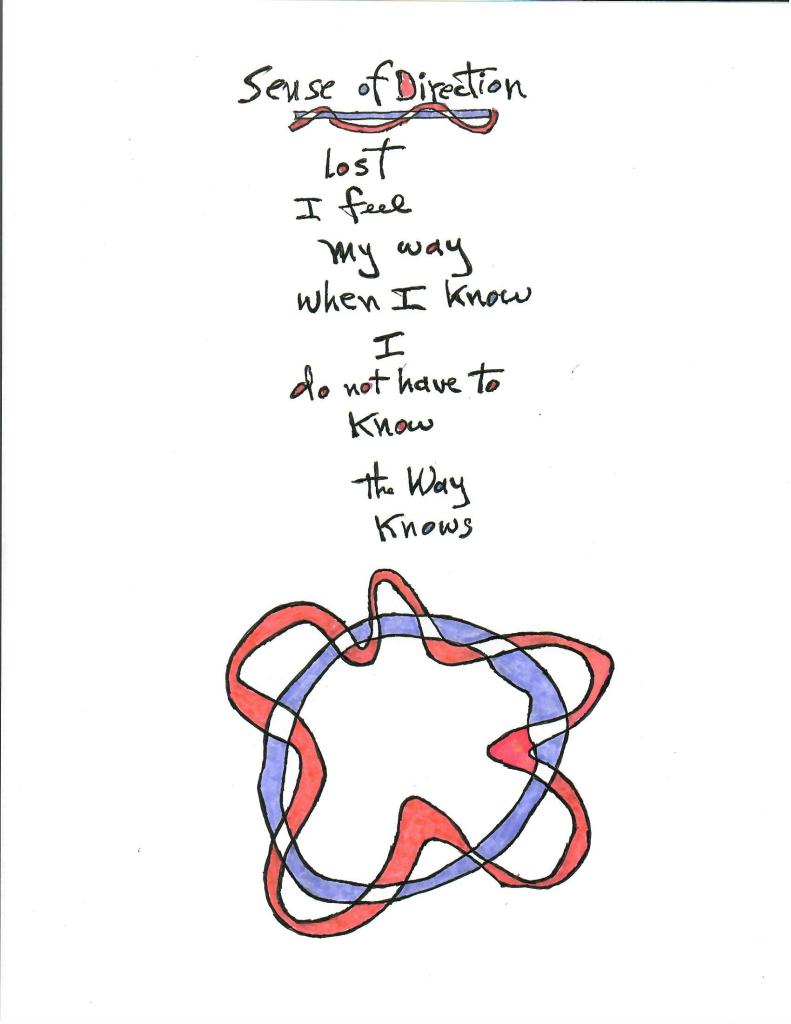 Sense of Direction
lost
I feel
my way
when I know
I
do not have to
know
the Way
Knows